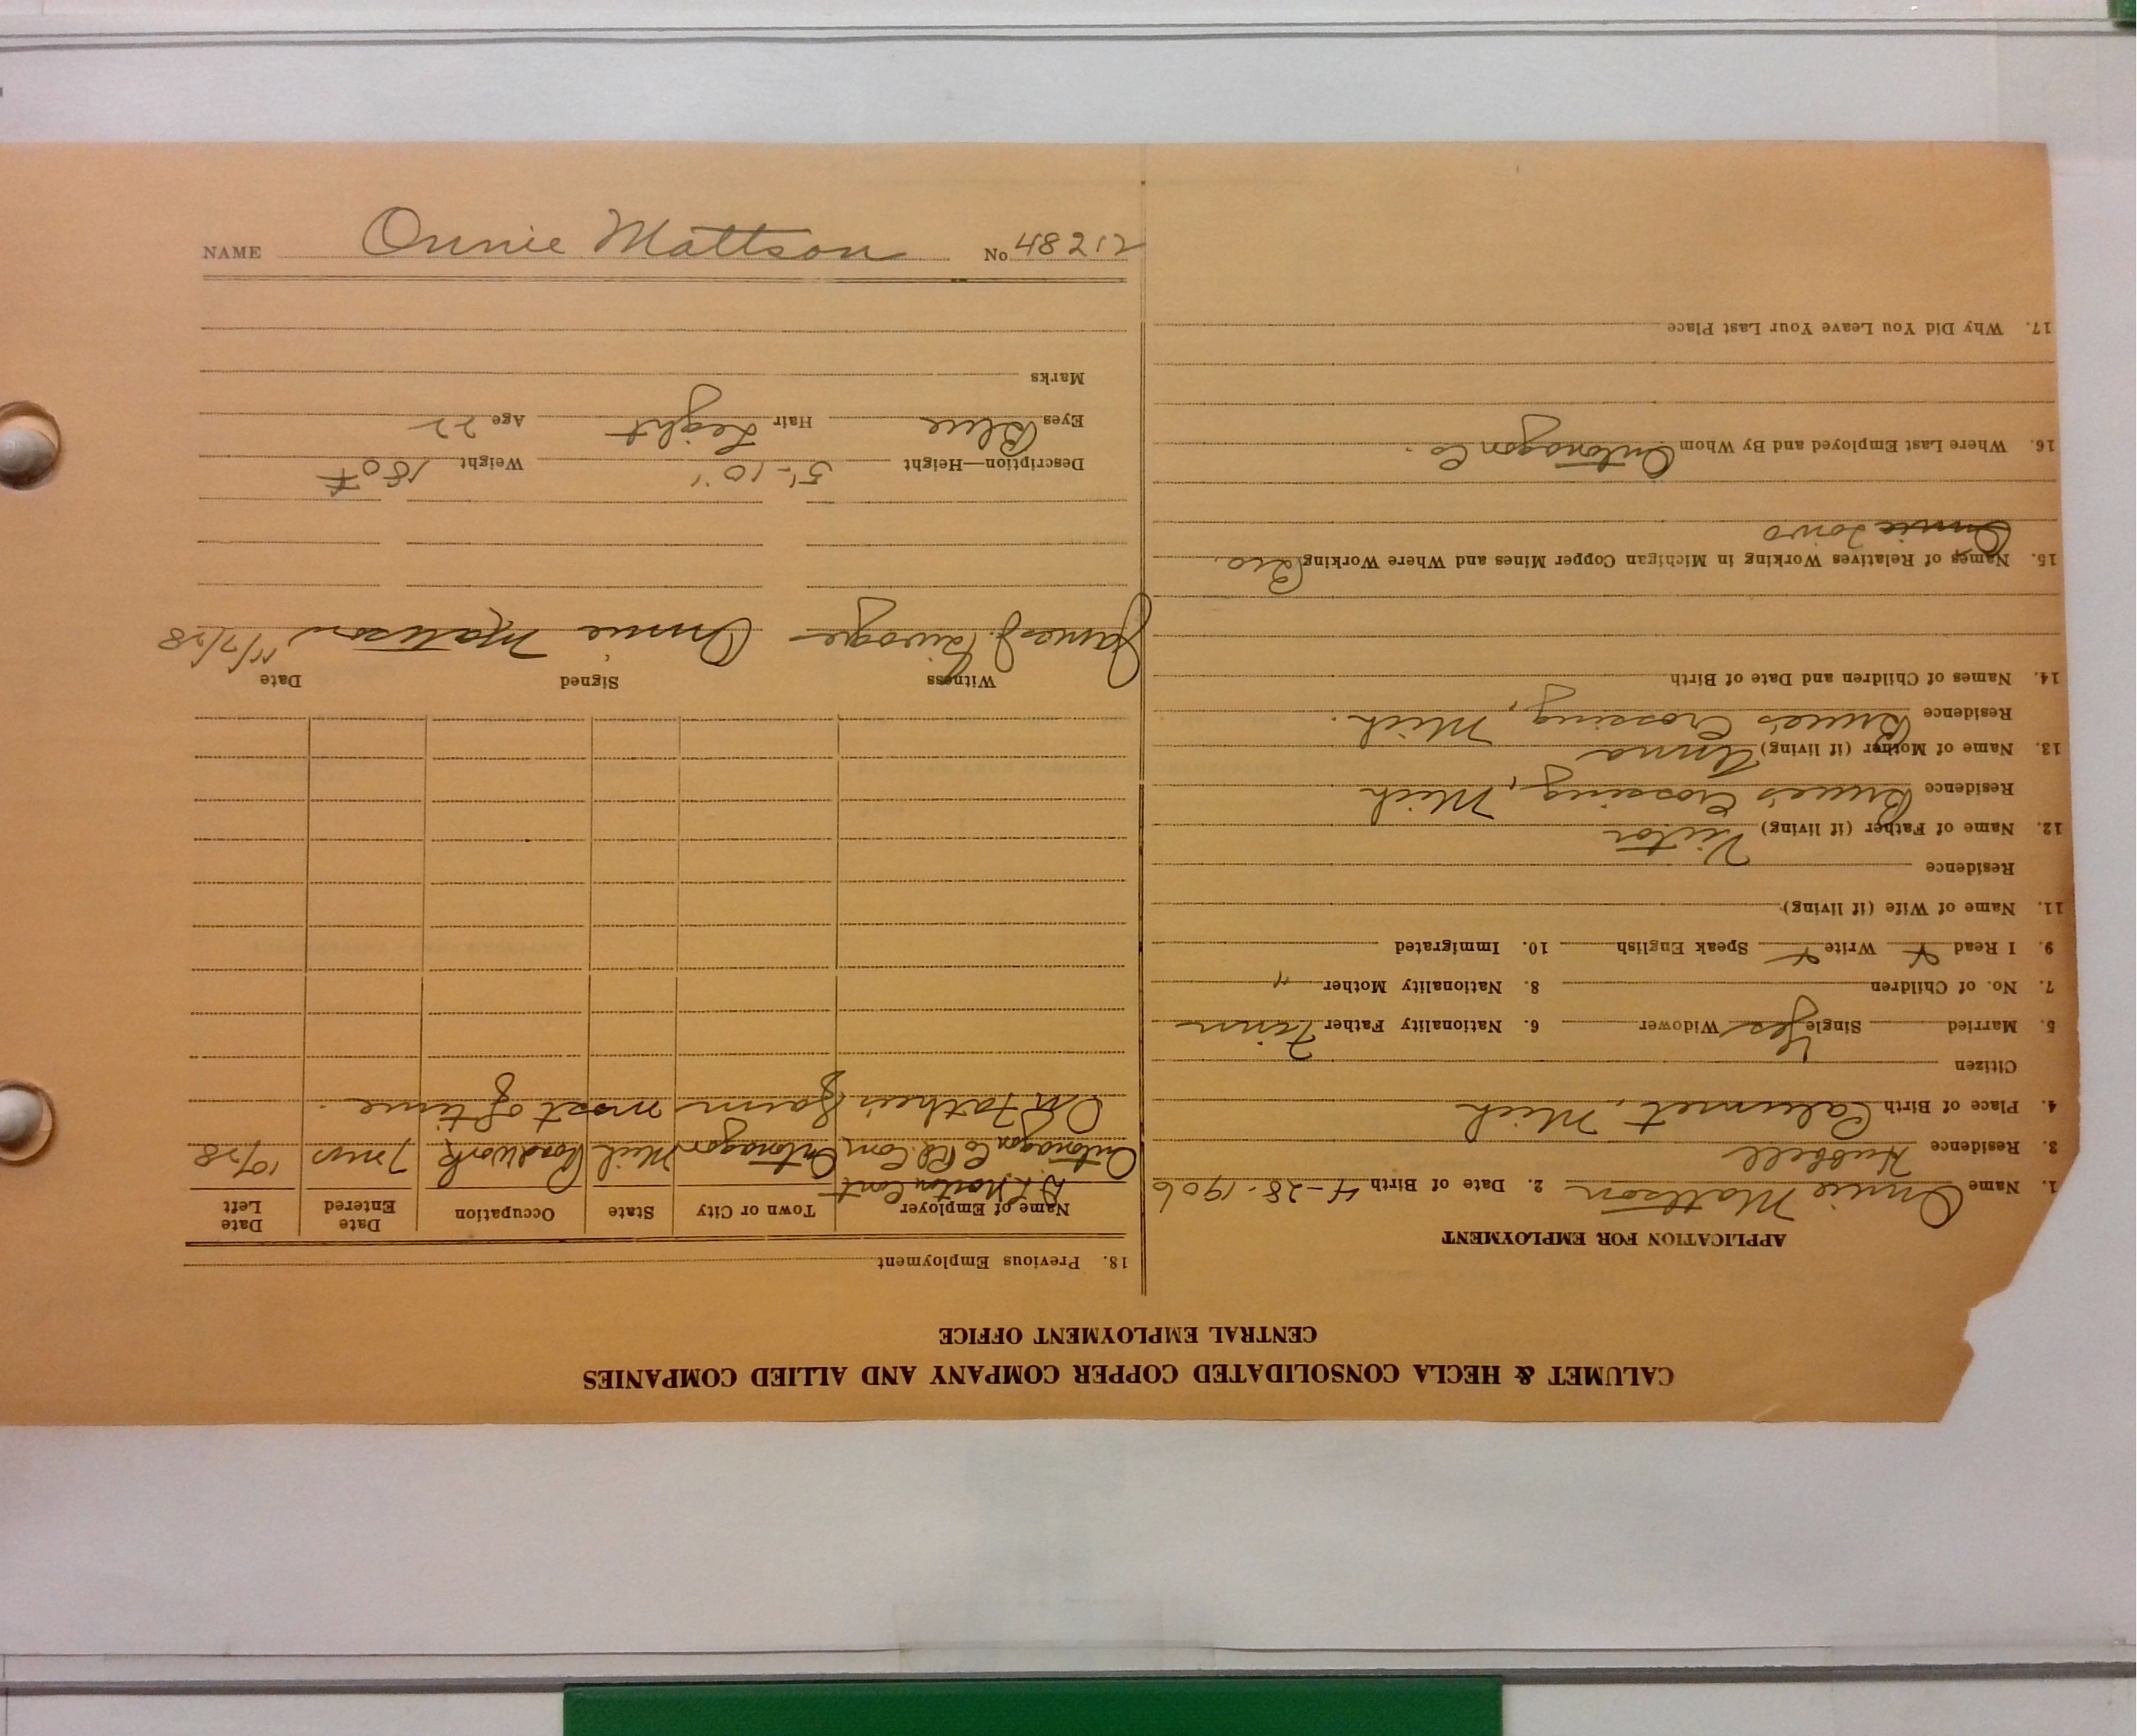 NAME Onnie Mattson No. 48212
CALUMET & HECLA CONSOLIDATED COPPER COMPANY AND ALLIED COMPANIES
CENTRAL EMPLOYMENT OFFICE
APPLICATION FOR EMPLOYMENT
1. Name Onnie Mattson 2. Date of Birth 4-28-1906
3. Residence Hubbell
4. Place of Birth Calumet, Mich
Citizen
5. Married Single Yes Widower 6. Nationality Father Finn
7. No. of Children 8. Nationality Mother "
9. I Read X Write X Speak English 10. Immigrated
11. Name of Wife (if living)
Residence
12. Name of Father (if living) Victor
Residence Bruce's Crossing, Mich
13. Name of Mother (if living) Anna
Residence Bruce's Crossing, Mich.
14. Names of Children and Date of Birth
15. Names of Relatives Working in Michigan Copper Mines and Where Working
Onnie Toivo
16. Where Last Employed and By Whom Ontonagon Co.
17. Why Did You Leave Your Last Place
18. Previous Employment
Name of Employer Town or City State Occupation Date Entered Date Left
Norton Cont
Ontonagon Co Rd. Com Ontonagon Mich Roadwork 7 mos 10/28
On Father's farm most of time.
Witness Signed Date
James J. Onnie Mattson 11/7/28
Description—Height 5'-10" Weight 180 #
Eyes Blue Hair Light Age 22
Marks